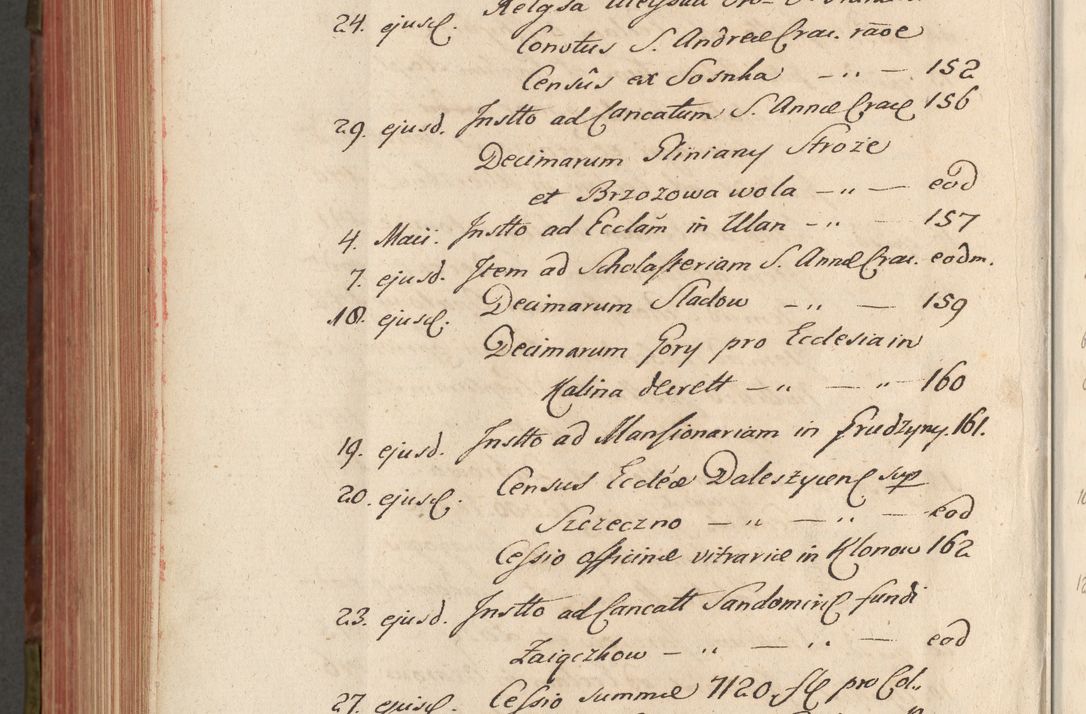 24. ejusd.
Convtus S. Andreæ Crac. raõe
Censûs ex Sosnka — „ — 152
29. ejusd. Instto ad Cancatum S. Annæ Crac 156
Decimarum Gliniany Stroże
et Brzozowa wola — „ — eod
4. Maii. Instto ad Ecclam in Ulan — „ — 157
7. ejusd. Item ad Scholasteriam S. Annæ Crac. eodm.
18. ejusd. Decimarum Sladow — „ — 159
Decimarum Gory pro Ecclesia in
Kalina decrett — „ — „ — 160
19. ejusd. Instto ad Mansionariam in Grudzyny. 161.
20. ejusd. Census Eccléæ Daleszycen sup
Szczeczno — „ — „ — eod
Cessio officinæ vitrariæ in Klonow 162
23. ejusd. Instto ad Cancatt Sandomir fundi
Zaięczkow — „ — „ — eod
27. ejusd. Cessio summæ 7120. fl pro Col.